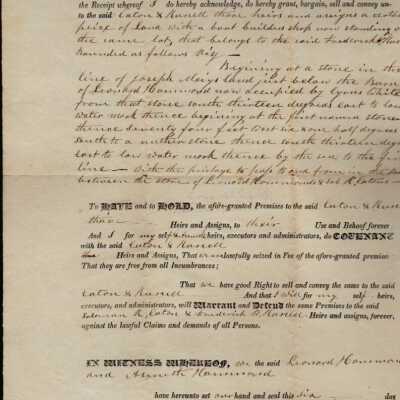 the Receipt whereof I do hereby acknowledge, do hereby grant, bargain, sell and convey un-
to the said Eaton & Russell their heirs and assigns a certain
peize of Land with a boat builders shop now standing o
the same lot, that belongs to the said Frederick
Bounded as follows Viz —
Begining at a stone in the
line of Joseph Meigs land just below the Barn
of Leonard Hammond now occupied by Cyrus White
from that stone south thirteen degrees east to low
water mark thence begining at the first named stone
thence seventy four feet West six & one half degrees
south to a nuther stone thence south thirteen degre
east to low water mark thence by the sea to the first
line — With the privilage to pass to and from in the
between the store of Leonard Hammonds & Sol K. Eatons —
To HAVE and to HOLD, the afore-granted Premises to the said Eaton & Russell
their — Heirs and Assigns, to their Use and Behoof forever
And I for my self & heirs, executors and administrators, do COVENANT
with the said Eaton & Russell
Heirs and Assigns, That lawfully seized in Fee of the afore-granted premises
That they are free from all Incumbrances;
That we have good Right to sell and convey the same to the said
Eaton & Russell And that I will for my self- heirs,
executors, and administrators, will Warrant and Defend the same Premises to the said
Soloman K. Eaton & Frederick Russell Heirs and assigns, forever,
against the lawful Claims and demands of all Persons.
IN WITNESS WHEREOF, we the said Leonard Hammond
and Hammond
have hereunto set our hand and seal this Six — day